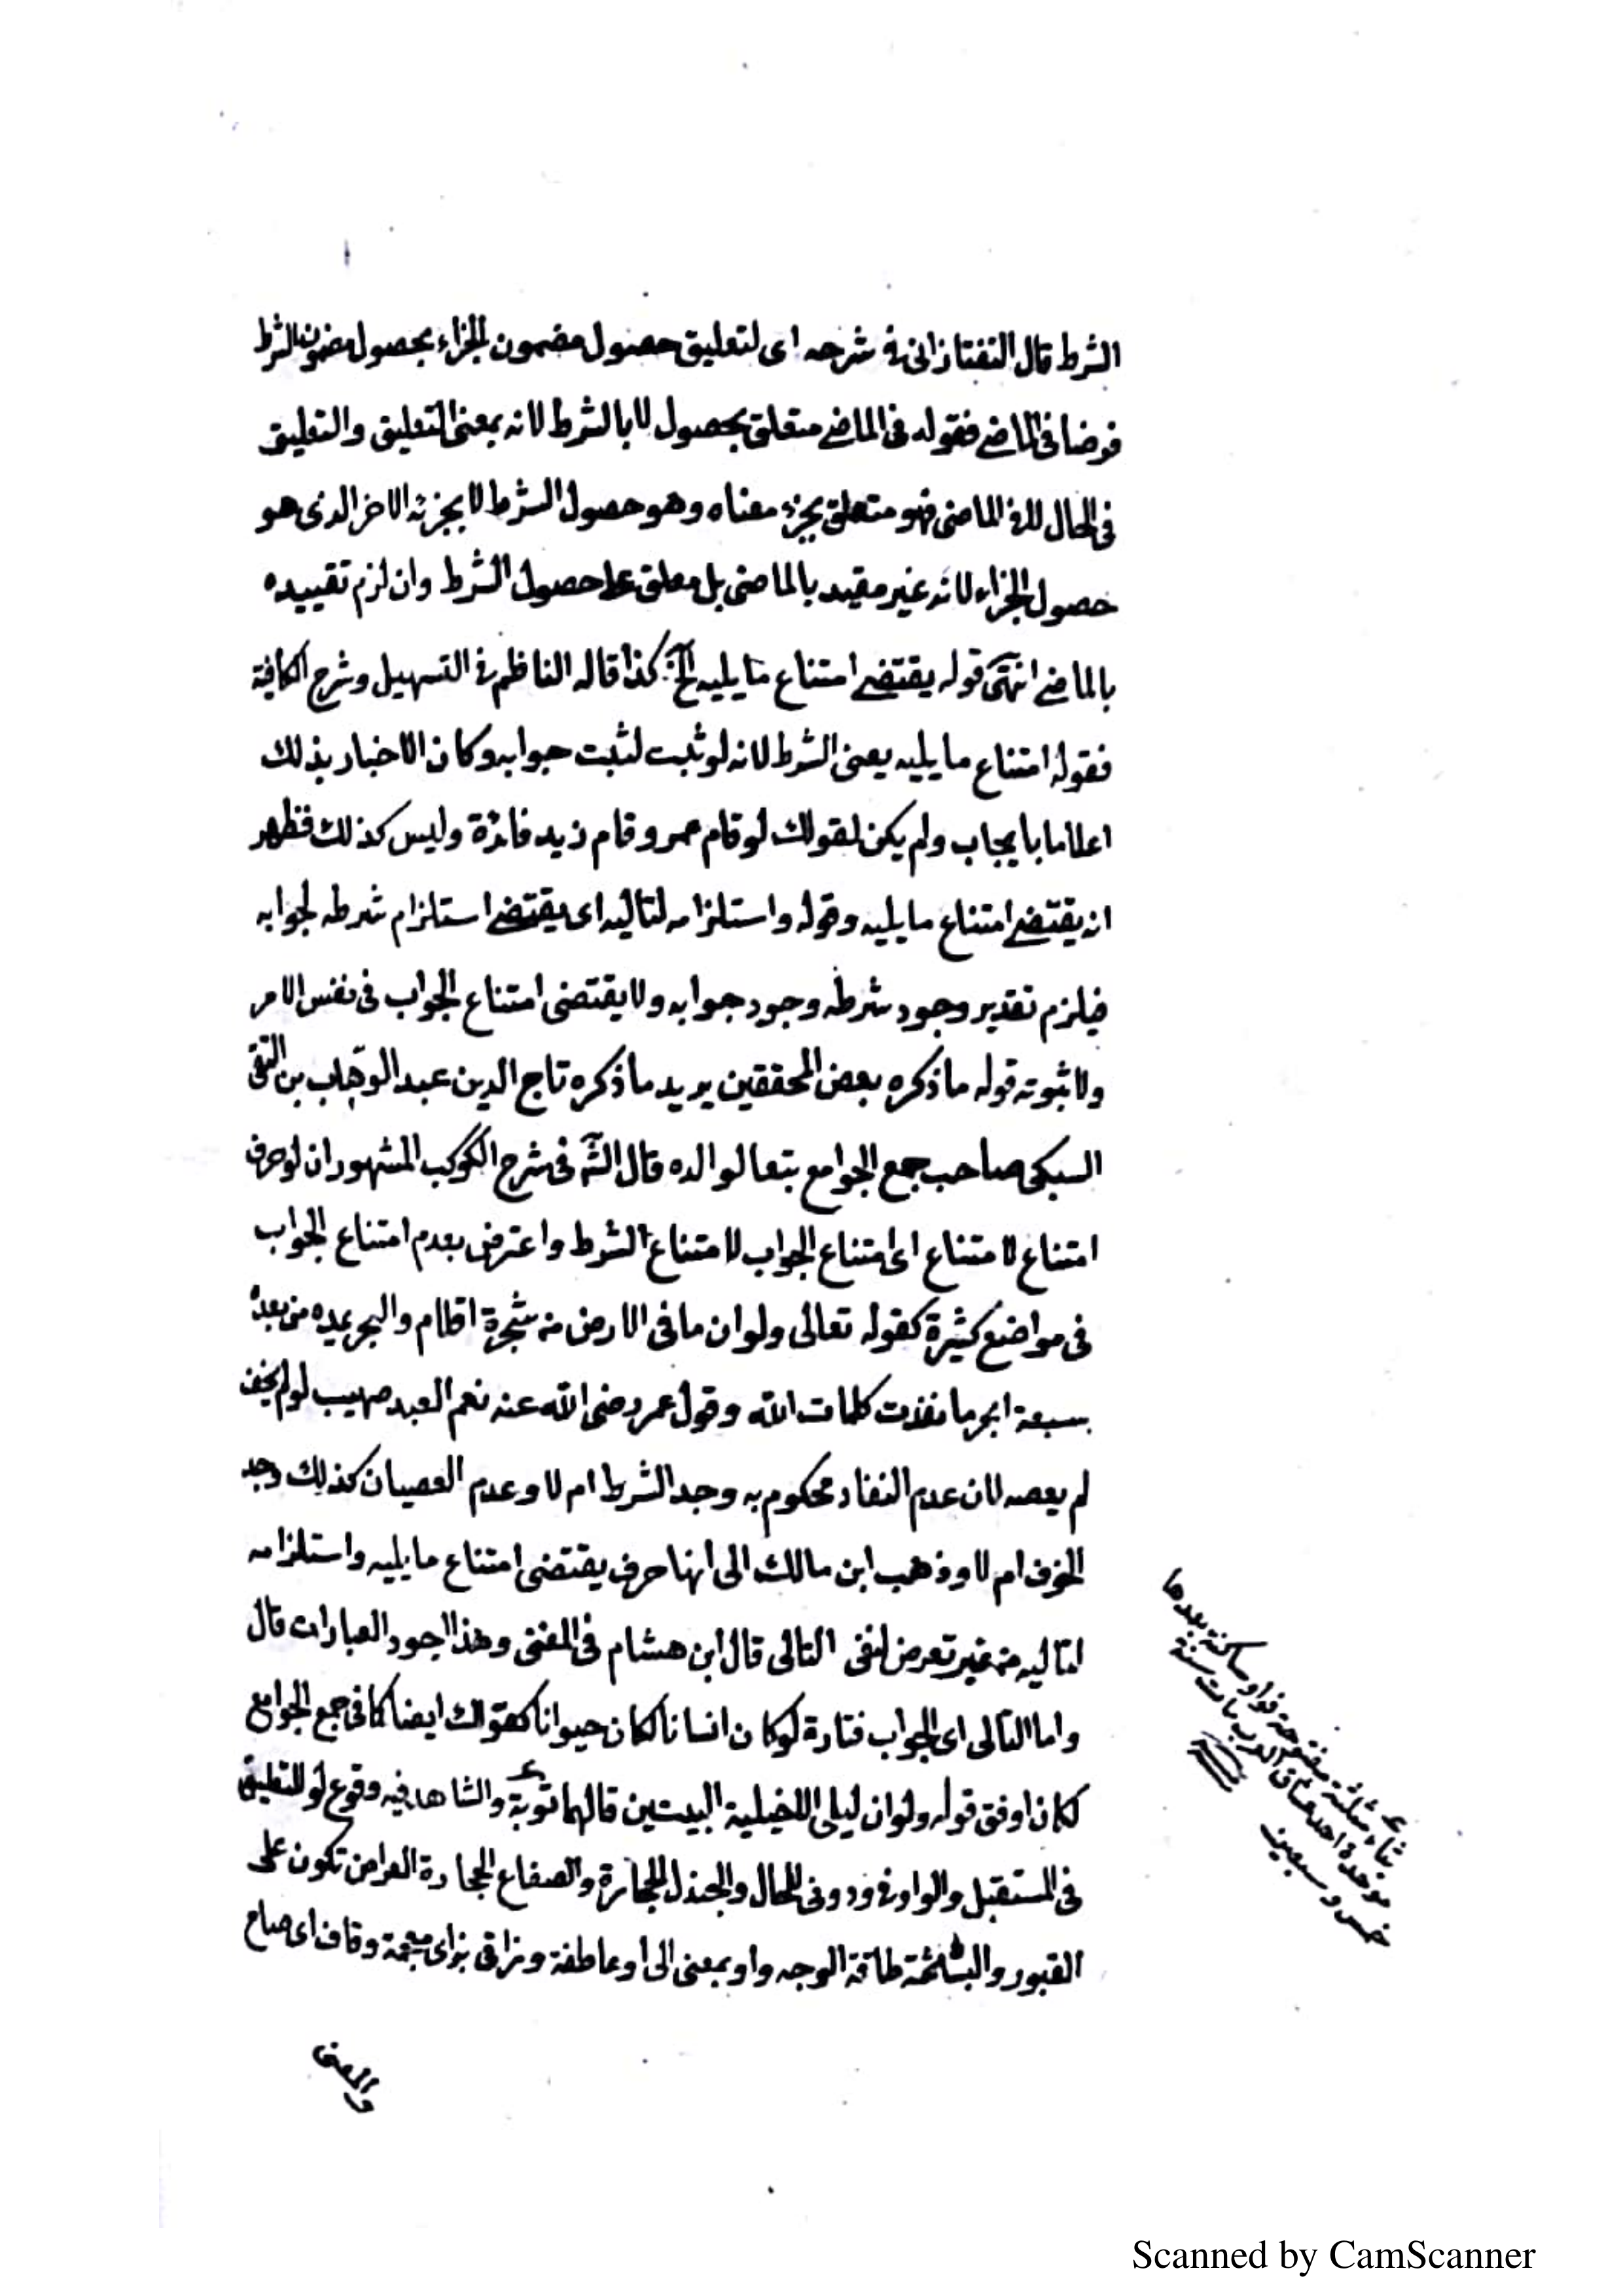 الشرط قال التفتازانى فى شرحه اى لتعليق حصول مضمون الجزاء بحصول مضمون الشرط
فرضا فى الماضى فقوله فى الماضى متعلق بحصول لا بالشرط لانه بمعنى التعليق والتعليق
فى الحال لا فى الماضى فهو متعلق بجزء معناه وهو حصول الشرط لا بجزئه الاخر الذى هو
حصول الجزاء لانه غير مقيد بالماضى بل معلق على حصول الشرط وان لزم تقييده
بالماضى انتهى قوله يقتضى امتناع ما يليه الخ كذا قاله الناظم فى التسهيل وشرح الكافية
فقوله امتناع ما يليه يعنى الشرط لانه لو ثبت لثبت جوابه وكان الاخبار بذلك
اعلاما بايجاب ولم يكن لقولك لو قام عمرو قام زيد فائدة وليس كذلك فظهر
انه يقتضى امتناع ما يليه وقوله واستلزامه لتاليه اى يقتضى استلزام شرطه لجوابه
فيلزم تقدير وجود شرطه وجود جوابه ولا يقتضى امتناع الجواب فى نفس الامر
ولا ثبوته قوله ما ذكره بعض المحققين يريد ما ذكره تاج الدين عبد الوهاب بن التقى
السبكى صاحب جمع الجوامع تبعا لوالده قال الش فى شرح الكوكب المشهور ان لو حرف
امتناع لامتناع اى امتناع الجواب لامتناع الشرط واعترض بعدم امتناع الجواب
فى مواضع كثيرة كقوله تعالى ولو ان ما فى الارض من شجرة اقلام والبحر يمده من بعده
سبعة ابحر ما نفدت كلمات الله وقول عمر رضى الله عنه نعم العبد صهيب لو لم يخف
لم يعصه لان عدم النفاد محكوم به وجد الشرط ام لا وعدم العصيان كذلك وجد
الخوف ام لا وذهب ابن مالك الى انها حرف يقتضى امتناع ما يليه واستلزامه
لتاليه من غير تعرض لنفى التالى قال ابن هشام فى المغنى وهذا اجود العبارات قال
واما التالى اى الجواب فتارة لو كان انسانا لكان حيوانا كقولك ايضا كما فى جمع الجوامع
لكان اوفق قوله ولو ان ليلى الاخيلية البيتين قالهما توبة والشاهد فيه وقوع لو للتعليق
فى المستقبل والواو فى ودونى للحال والجندل الحجارة والصفاع الحجارة العراض تكون على
القبور والبشاشة طلاقة الوجه واو بمعنى الى او عاطفة وزقى بزاى معجمة وقاف اى صاح
والمعنى
ع
بثاء مثلثة مفتوحة فواو ساكنة بعدها
موحدة احد عشاق العرب مات سنة
خمس وسبعين
Scanned by CamScanner